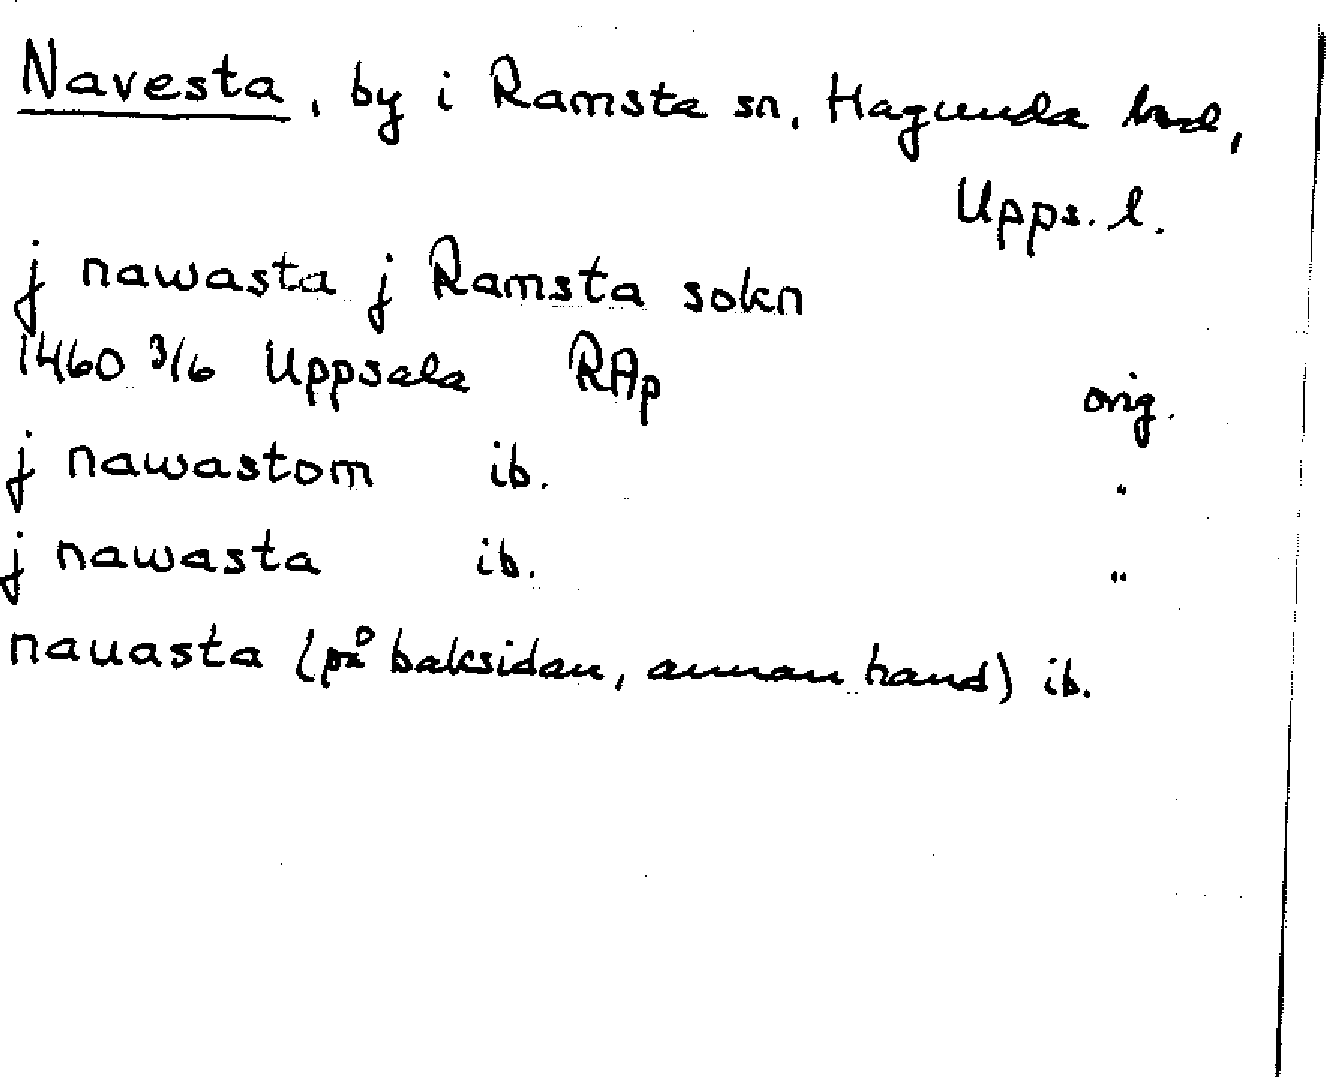 Navesta, by i Ramsta sn, Hagunda hnd,
Upps. l.
j nawasta j Ramsta sokn
1460 3/6 Uppsala RAp orig.
j nawastom ib. "
j nawasta ib. "
nauasta (på baksidan, annan hand) ib.